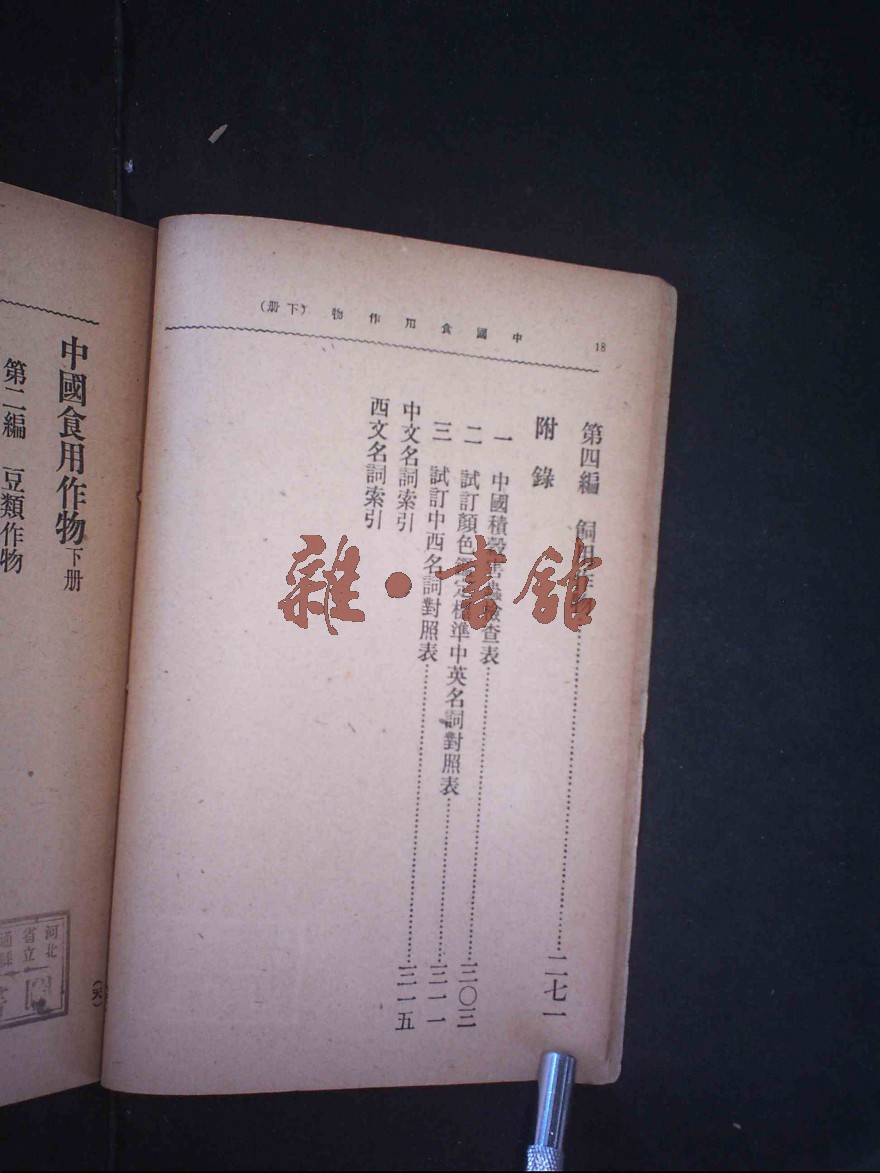 18
中國食用作物（下册）
第四編　飼用作物……二七一
附錄
一　中國積穀害蟲檢查表……三〇三
二　試訂顏色鑒定標準中英名詞對照表……三一一
三　試訂中西名詞對照表……三一五
中文名詞索引
西文名詞索引
雜·書館
中國食用作物下册
第二編　豆類作物
河北
省立